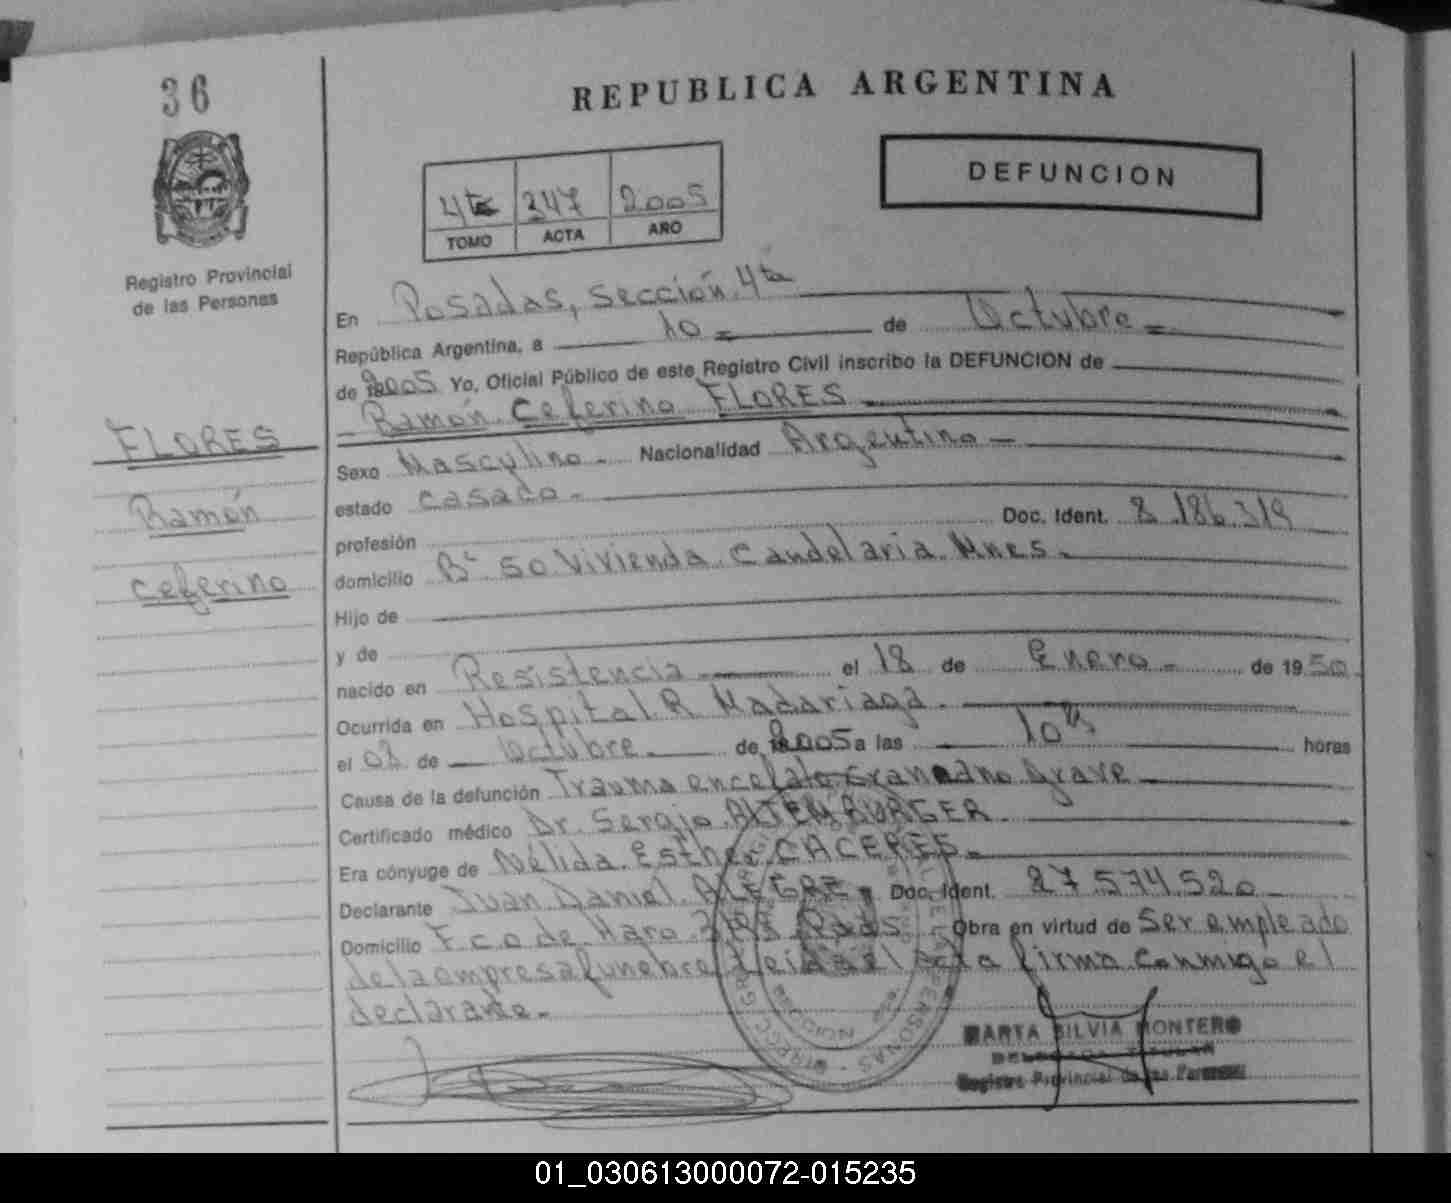 36
REPUBLICA ARGENTINA
DEFUNCION
4ta 347 2005
TOMO ACTA AÑO
Registro Provincial
de las Personas
En Posadas, sección 4ta
República Argentina, a 10 de Octubre
de 2005 Yo, Oficial Público de este Registro Civil inscribo la DEFUNCION de
Ramón Ceferino FLORES
FLORES
Ramón
Ceferino
Sexo Masculino Nacionalidad Argentino
estado casado
profesión Doc. Ident. 8.186.319
domicilio Bº 50 Vivienda Candelaria Mnes.
Hijo de
y de
nacido en Resistencia el 18 de Enero de 1950
Ocurrida en Hospital R. Madariaga
el 08 de Octubre de 2005 a las 10hs horas
Causa de la defunción Trauma encefalo craneano Grave
Certificado médico Dr. Sergio ALTEMBURGER
Era cónyuge de Nélida Esther CACERES
Declarante Juan Daniel ALEGRE Doc. Ident. 27.574.520
Domicilio Fco de Haro Pdas Obra en virtud de Ser empleado
de la empresa funebre Leida el Acta firma conmigo el
declarante.
MARTA SILVIA MONTERO
DELEGADA TITULAR
Registro Provincial de las Personas
01_030613000072-015235